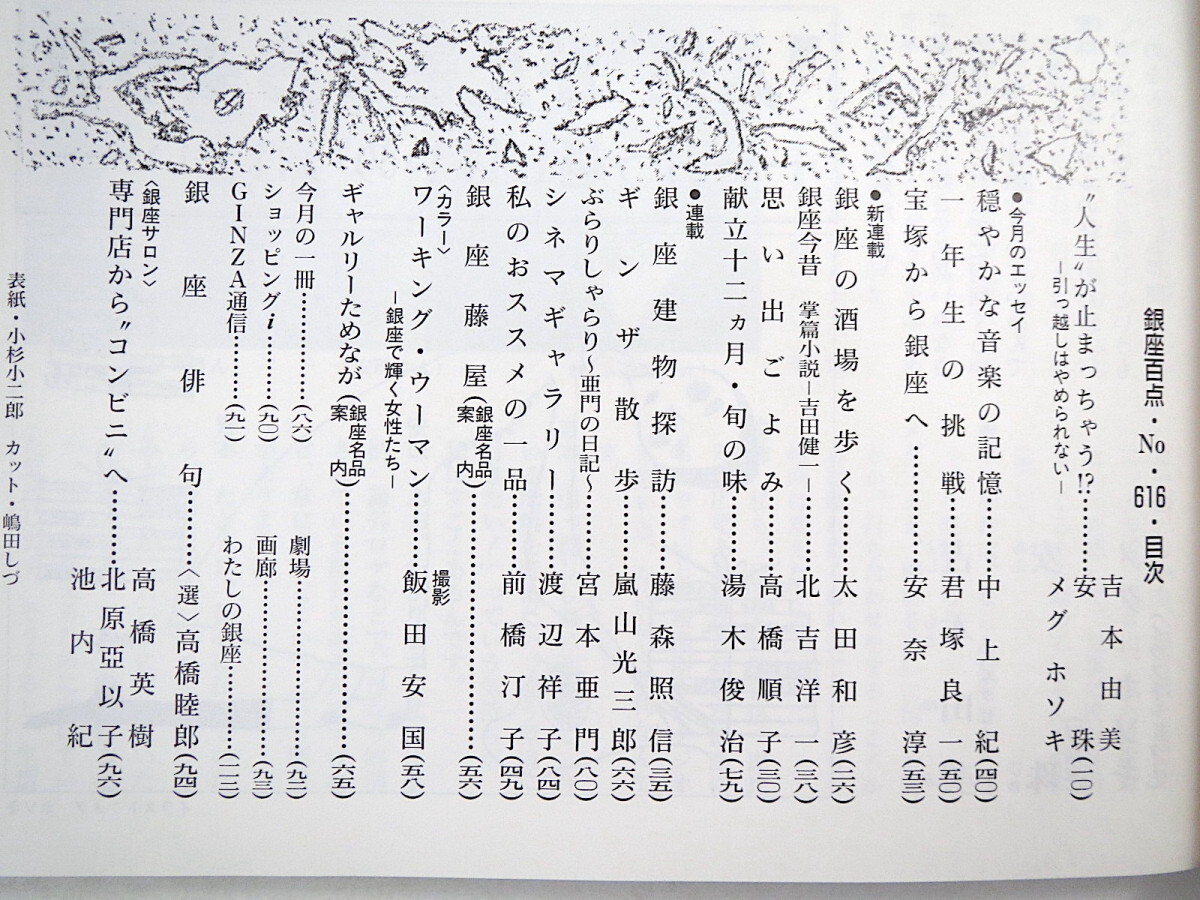 銀座百点・No・616・目次
〝人生〟が止まっちゃう!?………吉本由美 安珠 メグホソキ(一〇)
―引っ越しはやめられない―
●今月のエッセイ
穏やかな音楽の記憶………中上紀(四〇)
一年生の挑戦………君塚良一(五〇)
宝塚から銀座へ………安奈淳(五三)
●新連載
銀座の酒場を歩く………太田和彦(二六)
銀座今昔 掌篇小説―吉田健一―北吉洋一(三八)
思い出ごよみ………高橋順子(三〇)
献立十二ヵ月・旬の味………湯木俊治(七九)
●連載
銀座建物探訪………藤森照信(三五)
ギンザ散歩………嵐山光三郎(六六)
ぶらりしゃらり〜亜門の日記〜………宮本亜門(八〇)
シネマギャラリー………渡辺祥子(八四)
私のおススメの一品………前橋汀子(四九)
銀座藤屋(銀座名品案内)………(五六)
〈カラー〉
ワーキング・ウーマン………撮影 飯田安国(五八)
―銀座で輝く女性たち―
ギャルリーためなが(銀座名品案内)………(六五)
今月の一冊………(八六)
劇場………(九二)
ショッピングi………(九〇)
画廊………(九三)
GINZA通信………(九一)
わたしの銀座………(一一二)
銀座俳句………〈選〉高橋睦郎(九四)
〈銀座サロン〉
専門店から〝コンビニ〟へ………高橋英樹 北原亞以子 池内紀(九六)
表紙・小杉小二郎 カット・嶋田しづ